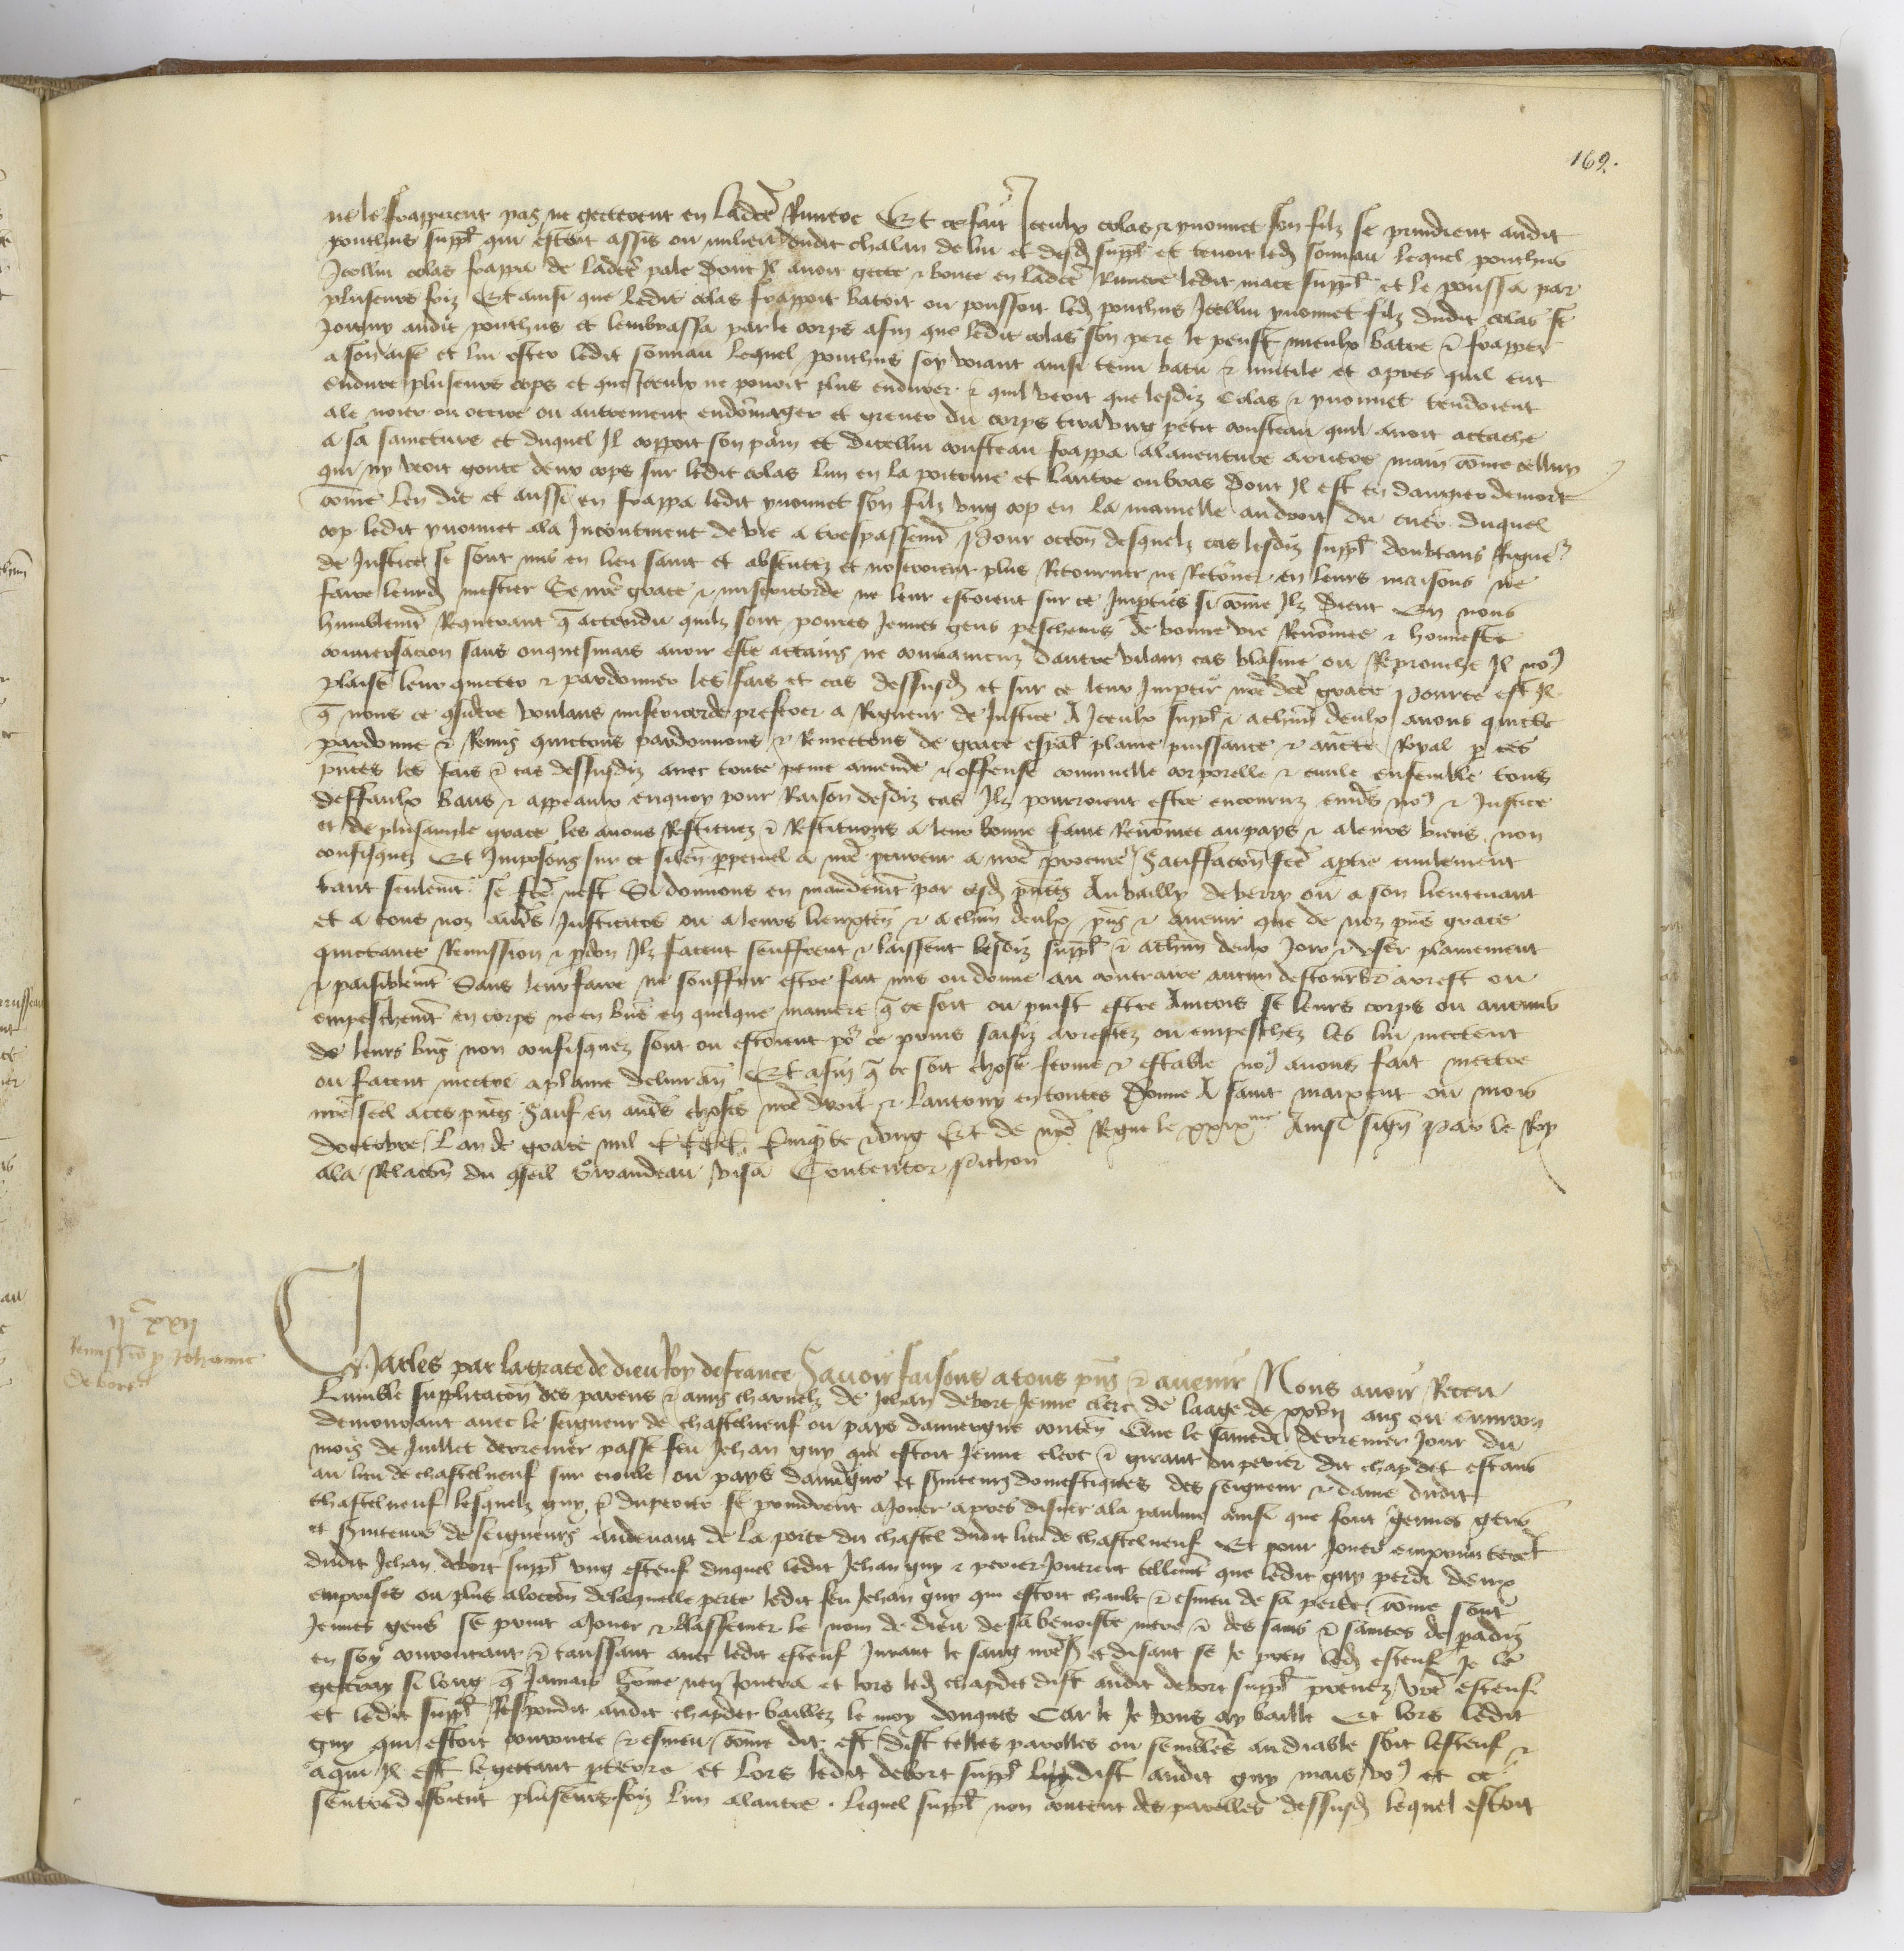 169.
ne le frapperent pas ne getterent en ladcẽ Riviere Et ce fait Iceulx colas & yvonnet son filz se prindrent audit
ponthus suppl̃ qui estoit assis ou milieu dudit chalan de lui et desd suppl̃ et tenoit led sonnau lequel ponthus
Icellui colas frappa de ladcẽ pale dont Il avoit gecte & boute en ladcẽ Riviere ledit mace suppl̃ et le poussa par
pluseurs foiz Et ainsi que ledit colas frappoit batoit ou poussoit led ponthus Icellui yvonnet filz dudit colas se
Joigny audit ponthus et lembrassa par le corps afin que ledit colas son pere le peust mieulx batre & frapper
a son aise et lui oster ledit sonnau lequel ponthus soy voiant ainsi tenu batu & mutile et apres quil eut
endure pluseurs cops et que Iceulx ne povoit plus endurer & quil veoit que lesdiz Colas & yvonnet tendoient
a le noier ou occire ou autrement endõmager et grever du corps tira ung petit cousteau quil avoit attache
a sa saincture et duquel Il coppoit son pain et dicellui cousteau frappa alaventure arriere main cõme cellui
qui ny veoit goute deux cops sur ledit colas lun en la poitrine et lautre ou bras Dont Il est en dangier de mort
cõme len dit et aussi en frappa ledit yvonnet son filz ung cop en la mamelle androit du cuer duquel
cop ledit yvonnet ala Incontinent de vie a trespassemt Pour occoñ desquelz cas lesdiz suppl̃ doubtans Rigueur
de Justice se sont mis en lieu saint et absentez et noseroient plus Retourner ne Retõner en leurs maisons ne
faire leurd mestier Se nrẽ grace & misericorde ne leur estoient sur ce Impties si cõme Ilz dient En nous
humblemt Requerant q̃ actendu quilz sont povres Jeunes gens pescheurs de bonne vie Renõmee & honneste
conversacion sans onquesmais avoir este attains ne convaincuz dautre vilain cas blasme ou Reprouche Il noꝰ
plaise leur quicter & pardonner les fais et cas dessusd et sur ce leur Imptir nrẽ dcẽ grace Pource est Il
q̃ nous ce ꝯsidere voulans misericorde preferer a Rigueur de Justice A Iceulx suppl̃ & a chũn deulx avons quicte
pardonne & Remis quictons pardonnons & Remettons de grace espal̃ plaine puissance & aũcte Royal p̲ ces
pñtes les fais & cas dessusdiz avec toute peine amende & offense criminelle corporelle & civile ensemble tous
deffaulx bans & appeaulx enquoy pour Raison desdiz cas Ilz pourroient estre encouruz enṽs noꝰ & Justice
et de plusample grace les avons Restituez & Restituons a leur bonne fame Renõmee au pays & a leurs biens non
confisquez Et Imposons sur ce silen̄ p̲petuel a nrẽ procureur a nrẽ procure Satisfacoñ fcẽ a p̲tie civilement
tant seulemt se fcẽ nest Si donnons en mandemt par cesd pñtes Au bailly de berry ou a son lieutenant
et a tous noz auts̃ Justiciers ou a leurs lieuxten̄ & a chũn deulx pñs & avenir que de noz pñs grace
quictance Remission & p̲don Ilz facent seuffrent & laissent lesdiz suppl̃ & a chũn deulx Joir & user plainement
& paisiblemt Sans leur faire ne souffrir estre fait mis ou donne au contraire aucun destourb̄ arrest ou
empeschemt en corps ne en biens en quelque maniere q̃ ce soit ou puist estre Aincois se leurs corps ou aucuns
de leurs biens non confisquez sont ou estoient po᷑ ce prins saisiz arrestez ou empeschez les lui mectent
ou facent mectre a plaine delivran̄ Et afin q̃ ce soit chose ferme & estable noꝰ avons fait mectre
nrẽ seel a ces pñtes Sauf en auts̃ choses nrẽ droit & lautruy en toutes Donne A saint maixent ou mois
doctobre Lan de grace mil CCCC cinqũte & ung Et de nrẽ Regne le xxixme Ainsi sign̄ Par le Roy
a la Relacoñ du ꝯseil Girandeau visa Contentor Pichon
IIc xxII
Remissio p̲ Johanne
de bort
Charles par la grace de dieu Roy de france Savoir faisons a tous pñs & avenir Nous avoir Receu
Lumble supplicacoñ des parens & amis charnelz de Jehan debort Jeune clerc de laage de xxvII ans ou environ
demourant avec le seigneur de chastelneuf ou pays dauvergne conten̄ Que le samedi derrenier Jour du
mois de Juillet derrenier passe feu Jehan guy qui estoit Jeune clerc & giraut du perier dit chapdet estans
au lieu de chastelneuf sur cioule ou pays dauvergne et s̃viteurs domestiques des seigneur & dame dudit
chastelneuf lesquelz guy & duperier se prindrent a Jouer apres disner a la paulme ainsi que font Jeunes gens
et s̃viteurs de seigneurs audevant de la porte du chastel dudit lieu de chastelneuf Et pour Jouer emprunterẽt
dudit Jehan debort suppl̃ ung esteuf duquel ledit Jehan guy & perier Jouerent tellemt que ledit guy perdi deux
emprises ou plus a loccoñ de laquelle perte ledit feu Jehan guy qui estoit chault & esmeu de sa perte cõme sont
Jeunes gens se print a Jurer & blasfemer le nom de dieu de sa benoiste mere & des sains & saintes de p̲adiz
en soy courroucant & tanssant avec ledit esteuf Jurant le sang nrẽ s et disant se Je pren led esteuf Je le
gecteray si loing q̃ Jamais hõme nen Jouera et lors led chapdet dist audit debort suppl̃ prenez vrẽ esteuf
et ledit suppl̃ Respondit audit chapdet baillez le moy donques Car le Je vous ay baille Et lors ledit
guy qui estoit courroucie & esmeu cõme dit est dist telles parolles ou semblēs au diable soit lesteuf &
a qui Il est le gectant p̲terre et Lors ledit debort suppl̃ luy dist audit guy mais voꝰ et ce
sentredisoient pluseurs foiz lun a lautre. lequel suppl̃ non content des parolles dessusd lequel estoit